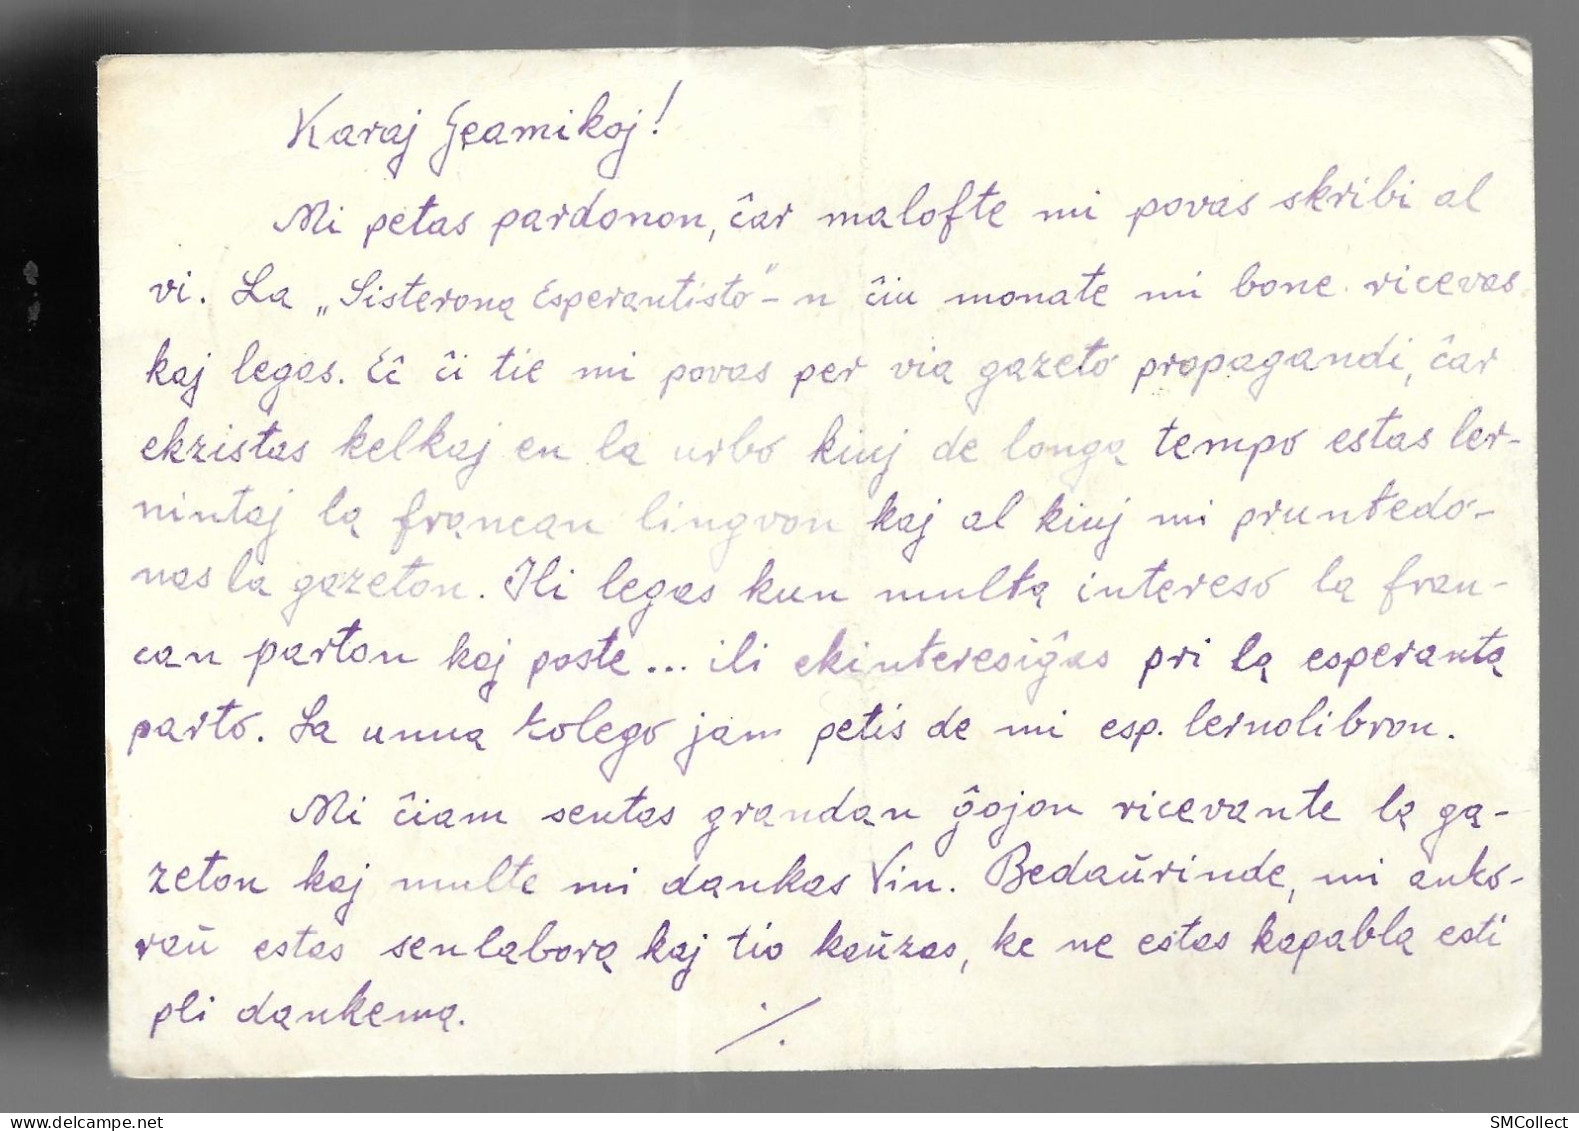 Karaj Geamikoj!
Mi petas pardonon, ĉar malofte mi povas skribi al
vi. La „Sisterona Esperantisto"-n ĉiu monate mi bone ricevas
kaj legas. Eĉ ĉi tie mi povas per via gazeto propagandi, ĉar
ekzistas kelkaj en la urbo kiuj de longa tempo estas ler-
nintaj la francan lingvon kaj al kiuj mi pruntedo-
nas la gazeton. Ili legas kun multa intereso la fran-
can parton kaj poste... ili ekinteresiĝas pri la esperanta
parto. La unua kolego jam petis de mi esp. lernolibron.
Mi ĉiam sentas grandan ĝojon ricevante la ga-
zeton kaj multe mi dankas Vin. Bedaŭrinde, mi anko-
raŭ estas senlabora kaj tio kaŭzas, ke ne estas kapabla esti
pli dankema.
./.
www.delcampe.net
SMCollect